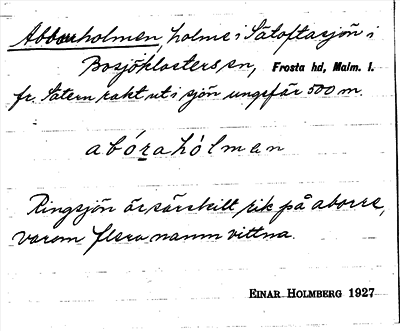 Abborrholmen, holme i Sätoftasjön i
Bosjöklosters sn, Frosta hd, Malm. l.
fr. Sätern rakt ut i sjön ungefär 500 m.
abórahòlmen
Ringsjön är särskilt rik på aborre,
varom flera namn vittna.
EINAR HOLMBERG 1927